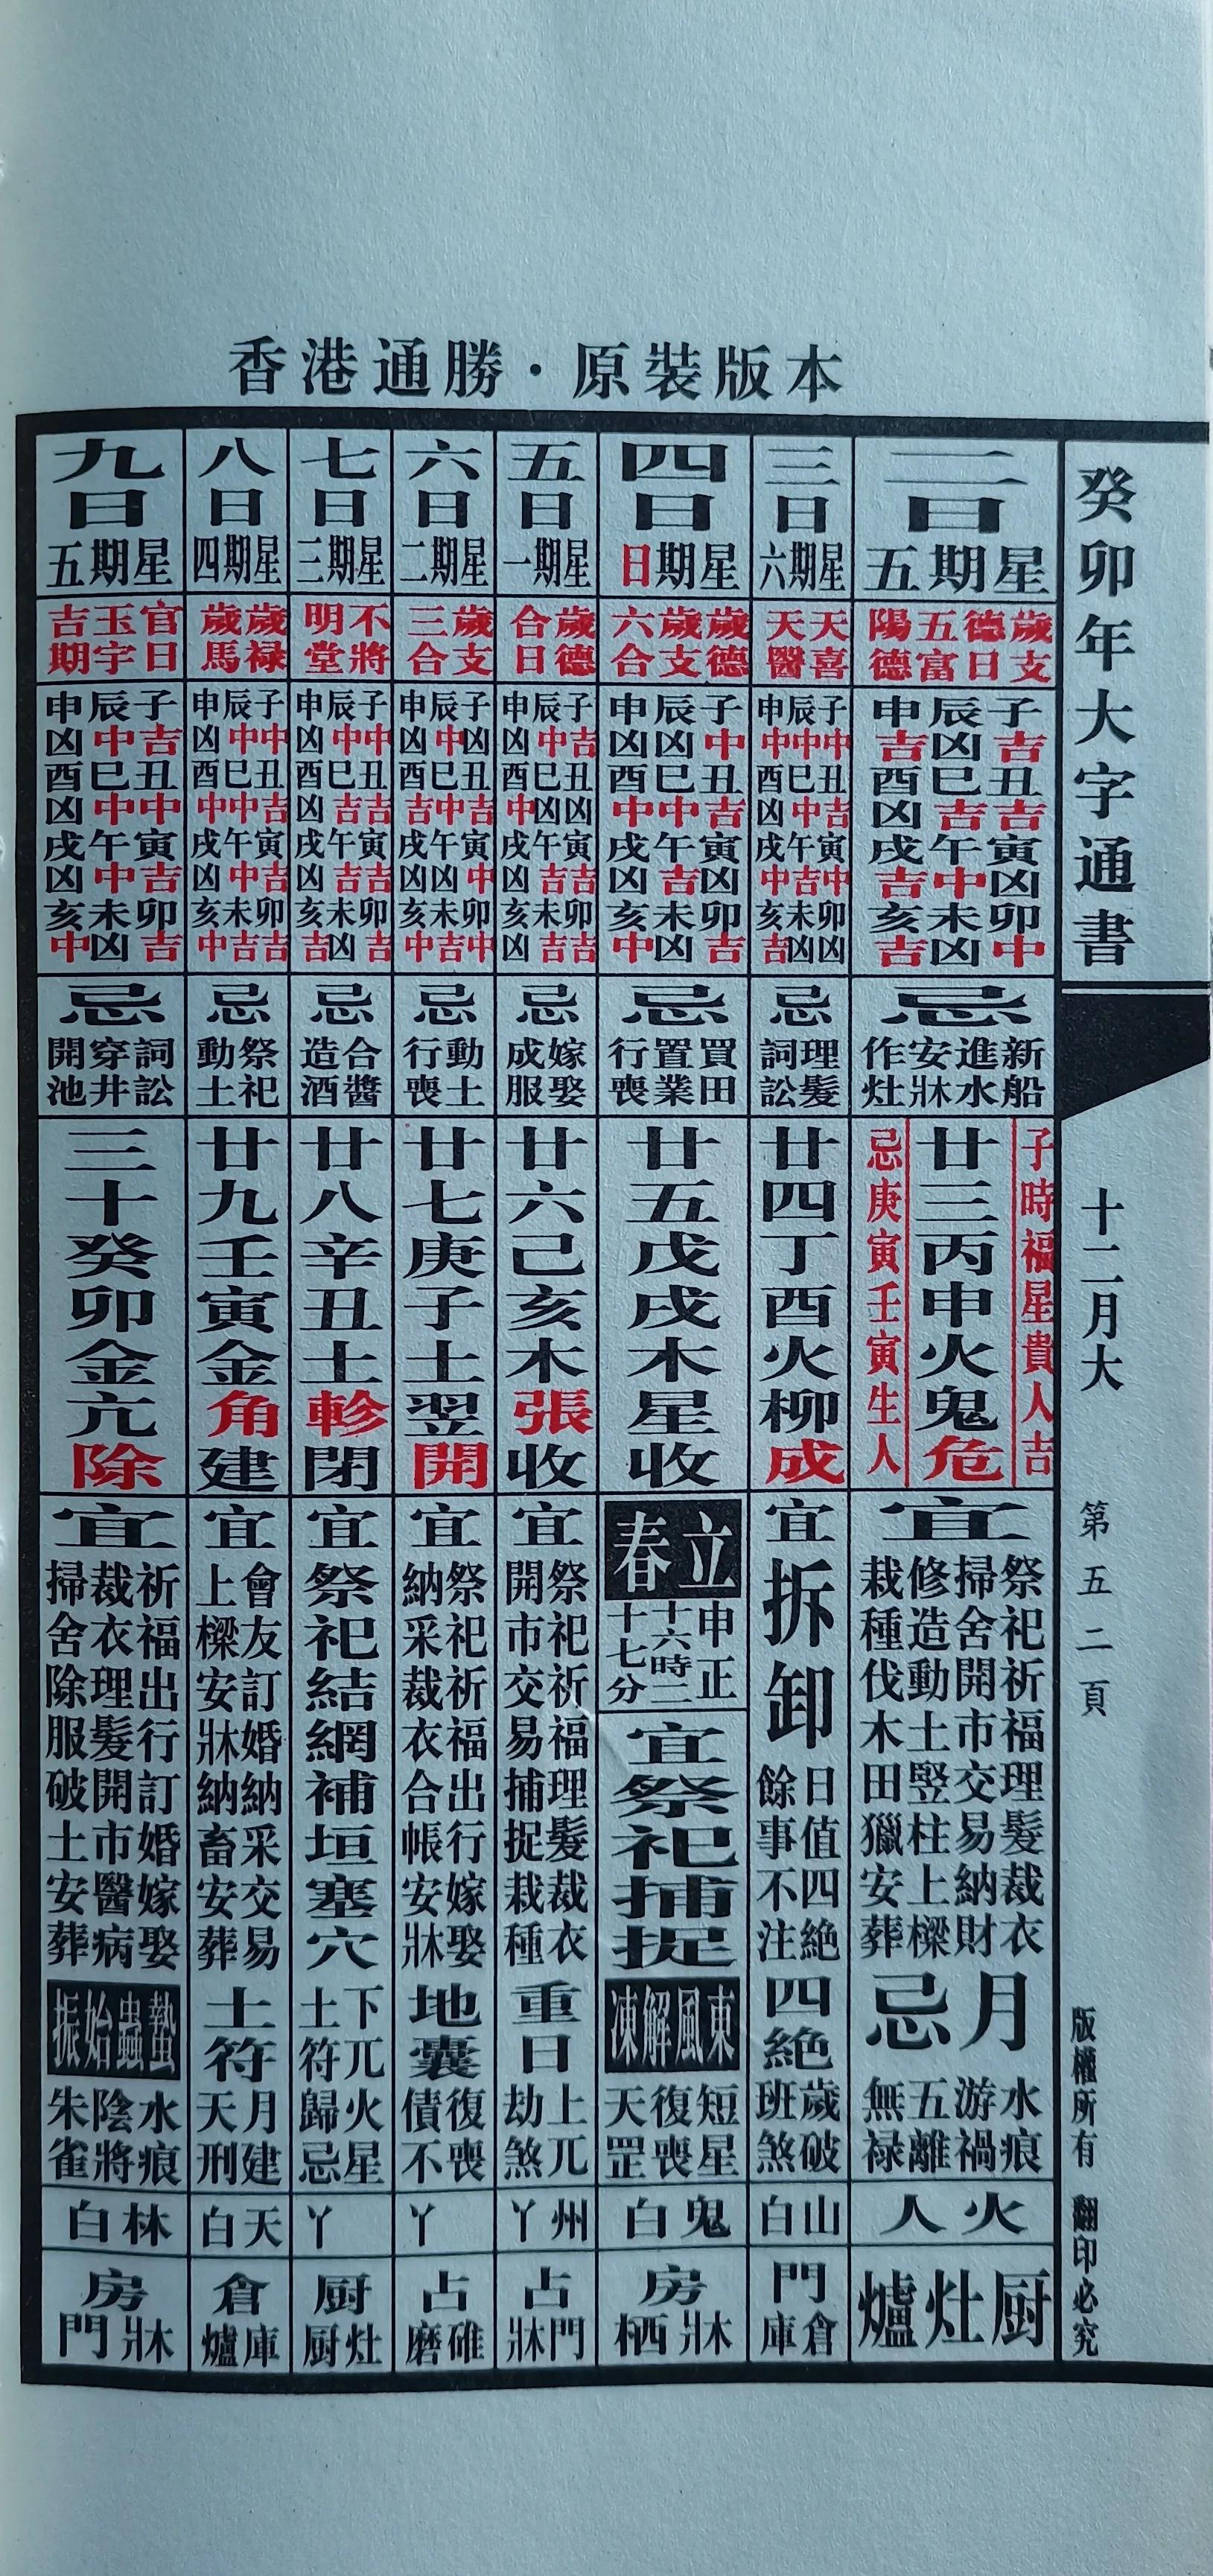 香港通勝·原裝版本
癸卯年大字通書
十二月大
第五二頁
版權所有 翻印必究
二日
星期五
歲支
德日
五富
陽德
子吉丑吉寅凶卯中
辰凶巳吉午中未凶
申吉酉凶戌吉亥吉
忌
新船
進水
安牀
作灶
子時福星貴人吉
廿三丙申火鬼危
忌庚寅壬寅生人
宜
祭祀祈福理髮裁衣
掃舍開市交易納財
修造動土竪柱上樑
栽種伐木田獵安葬
月忌
水痕
游禍
五離
無祿
火人
厨灶爐
三日
星期六
天喜
天醫
子中丑吉寅中卯凶
辰中巳中午吉未凶
申中酉凶戌中亥吉
忌
理髮
詞訟
廿四丁酉火柳成
宜
拆卸
日值四絶
餘事不注
四絶
歲破
班煞
山白
門
倉庫
四日
星期日
歲德
歲支
六合
子中丑吉寅凶卯吉
辰凶巳中午吉未凶
申凶酉中戌凶亥中
忌
買田
置業
行喪
廿五戊戌木星收
立春
申正
十六時二
十七分
宜祭祀捕捉
東風解凍
短星
復喪
天罡
鬼白
房
牀栖
五日
星期一
歲德
合日
子吉丑凶寅吉卯吉
辰中巳凶午吉未吉
申凶酉中戌凶亥凶
忌
嫁娶
成服
廿六己亥木張收
宜
祭祀祈福理髮裁衣
開市交易捕捉栽種
重日
上兀
劫煞
州丫
占
門牀
六日
星期二
歲支
三合
子凶丑吉寅中卯中
辰中巳中午凶未吉
申凶酉吉戌凶亥中
忌
動土
行喪
廿七庚子土翌開
宜
祭祀祈福出行嫁娶
納采裁衣合帳安牀
地囊
復喪
債不
丫
占
碓磨
七日
星期三
不將
明堂
子中丑吉寅吉卯吉
辰中巳吉午吉未凶
申凶酉凶戌凶亥吉
忌
合醬
造酒
廿八辛丑土軫閉
宜
祭祀結網補垣塞穴
下兀火星
土符歸忌
丫
厨
灶厨
八日
星期四
歲禄
歲馬
子中丑吉寅吉卯吉
辰中巳中午中未吉
申凶酉中戌凶亥中
忌
祭祀
動土
廿九壬寅金角建
宜
會友訂婚納采交易
上樑安牀納畜安葬
土符
月建
天刑
天白
倉
庫爐
九日
星期五
官日
玉宇
吉期
子吉丑中寅吉卯吉
辰中巳中午中未凶
申凶酉凶戌凶亥中
忌
詞訟
穿井
開池
三十癸卯金亢除
宜
祈福出行訂婚嫁娶
裁衣理髮開市醫病
掃舍除服破土安葬
蟄蟲始振
水痕
陰將
朱雀
林白
房
牀門